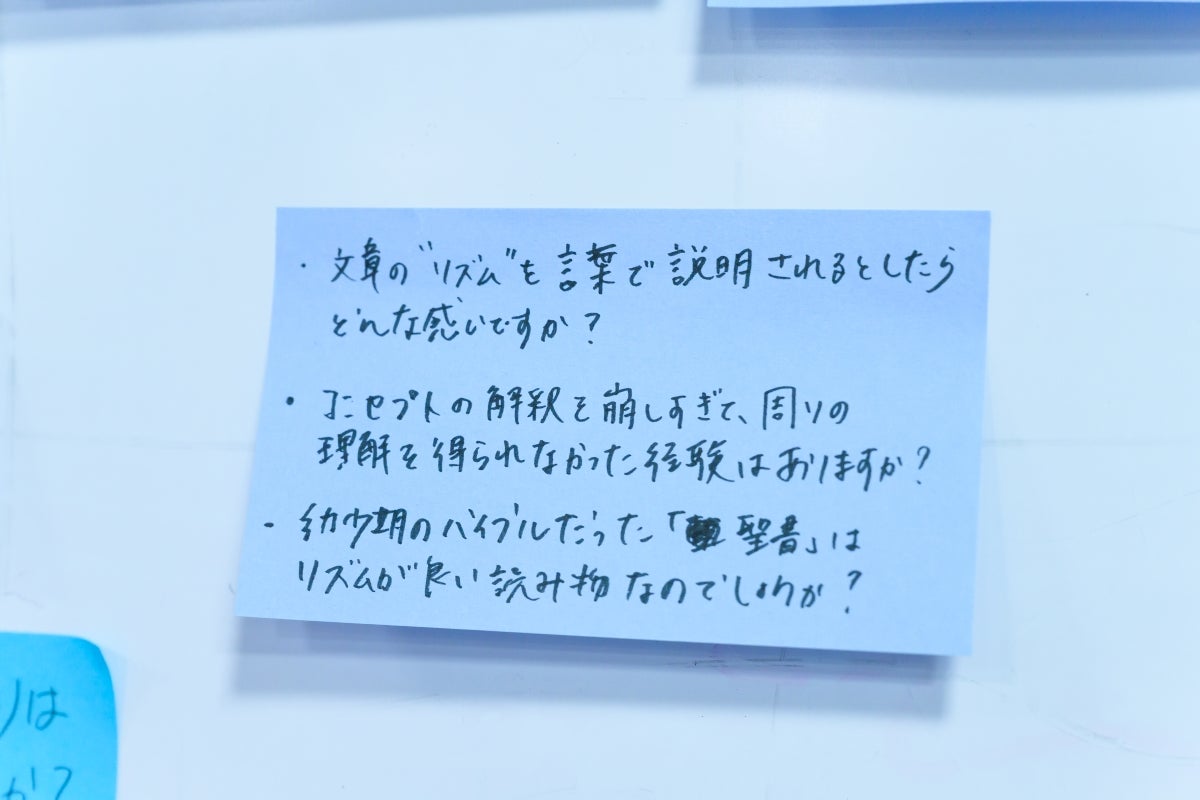 ・文章の"リズム"を言葉で説明されるとしたら
どんな感じですか？
・コンセプトの解釈を崩しすぎて、周りの
理解を得られなかった経験はありますか？
・幼少期のバイブルだった「聖書」は
リズムが良い読み物なのでしょうか？
りは
か？